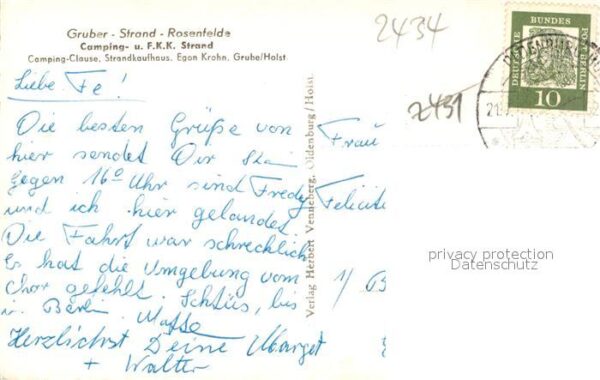 Gruber - Strand - Rosenfelde
Camping- u. F.K.K. Strand
Camping-Clause, Strandkaufhaus, Egon Krahn, Grube/Holst
2434
2431
DEUTSCHE BUNDESPOST BERLIN
10
OLDENBURG
21.
Liebe Fe!
Die besten Grüße von
hier sendet Dir
Gegen 16⁰ Uhr sind Fredy
und ich hier gelandet.
Die Fahrt war schrecklich
Es hat die Umgebung vom
Chor gefehlt. Schtüs, bis
Berlin.
Herzlichst Deine Margot
+ Walter
Verlag Herbert Venneberg, Oldenburg/Holst.
Frau
Felicita
1/ B
privacy protection
Datenschutz